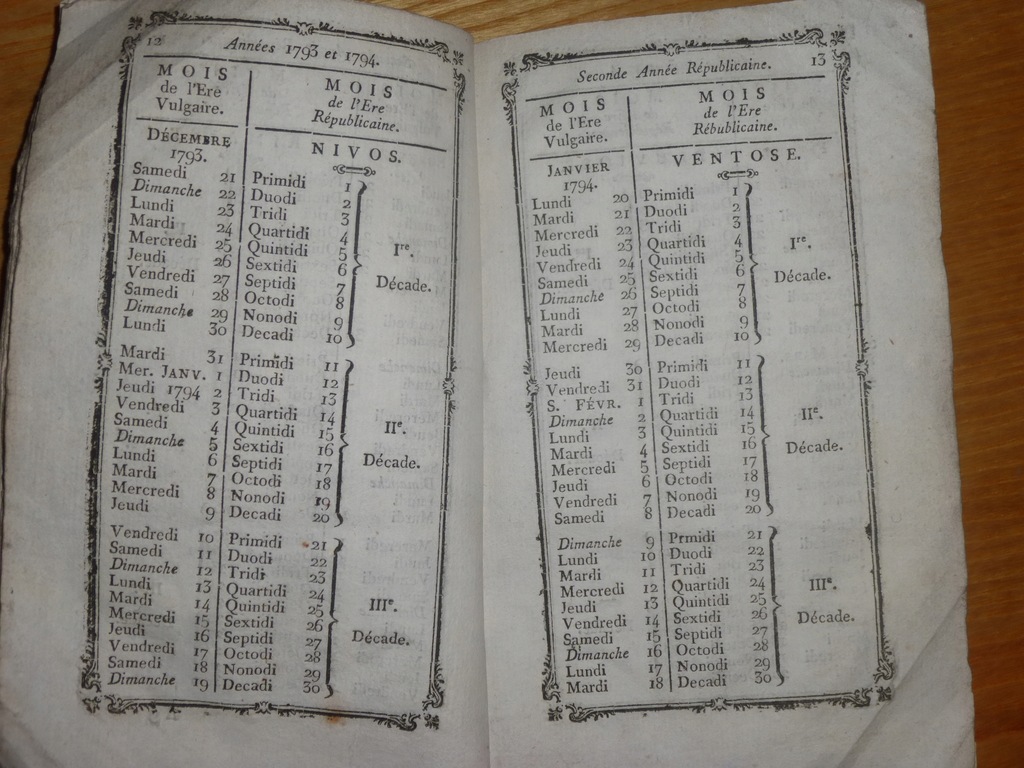 12
Années 1793 et 1794.
MOIS
de l'Ere
Vulgaire.
MOIS
de l'Ere
Républicaine.
DÉCEMBRE
1793.
NIVOS.
Samedi 21 Primidi 1
Dimanche 22 Duodi 2
Lundi 23 Tridi 3
Mardi 24 Quartidi 4
Mercredi 25 Quintidi 5
Jeudi 26 Sextidi 6
Vendredi 27 Septidi 7
Samedi 28 Octodi 8
Dimanche 29 Nonodi 9
Lundi 30 Decadi 10
Ire.
Décade.
Mardi 31 Primidi 11
Mer. JANV. 1 Duodi 12
Jeudi 1794 2 Tridi 13
Vendredi 3 Quartidi 14
Samedi 4 Quintidi 15
Dimanche 5 Sextidi 16
Lundi 6 Septidi 17
Mardi 7 Octodi 18
Mercredi 8 Nonodi 19
Jeudi 9 Decadi 20
IIe.
Décade.
Vendredi 10 Primidi 21
Samedi 11 Duodi 22
Dimanche 12 Tridi 23
Lundi 13 Quartidi 24
Mardi 14 Quintidi 25
Mercredi 15 Sextidi 26
Jeudi 16 Septidi 27
Vendredi 17 Octodi 28
Samedi 18 Nonodi 29
Dimanche 19 Decadi 30
IIIe.
Décade.
Seconde Année Républicaine.
13
MOIS
de l'Ere
Vulgaire.
MOIS
de l'Ere
Rébublicaine.
JANVIER
1794.
VENTOSE.
Lundi 20 Primidi 1
Mardi 21 Duodi 2
Mercredi 22 Tridi 3
Jeudi 23 Quartidi 4
Vendredi 24 Quintidi 5
Samedi 25 Sextidi 6
Dimanche 26 Septidi 7
Lundi 27 Octodi 8
Mardi 28 Nonodi 9
Mercredi 29 Decadi 10
Ire.
Décade.
Jeudi 30 Primidi 11
Vendredi 31 Duodi 12
S. FÉVR. 1 Tridi 13
Dimanche 2 Quartidi 14
Lundi 3 Quintidi 15
Mardi 4 Sextidi 16
Mercredi 5 Septidi 17
Jeudi 6 Octodi 18
Vendredi 7 Nonodi 19
Samedi 8 Decadi 20
IIe.
Décade.
Dimanche 9 Prmidi 21
Lundi 10 Duodi 22
Mardi 11 Tridi 23
Mercredi 12 Quartidi 24
Jeudi 13 Quintidi 25
Vendredi 14 Sextidi 26
Samedi 15 Septidi 27
Dimanche 16 Octodi 28
Lundi 17 Nonodi 29
Mardi 18 Decadi 30
IIIe.
Décade.